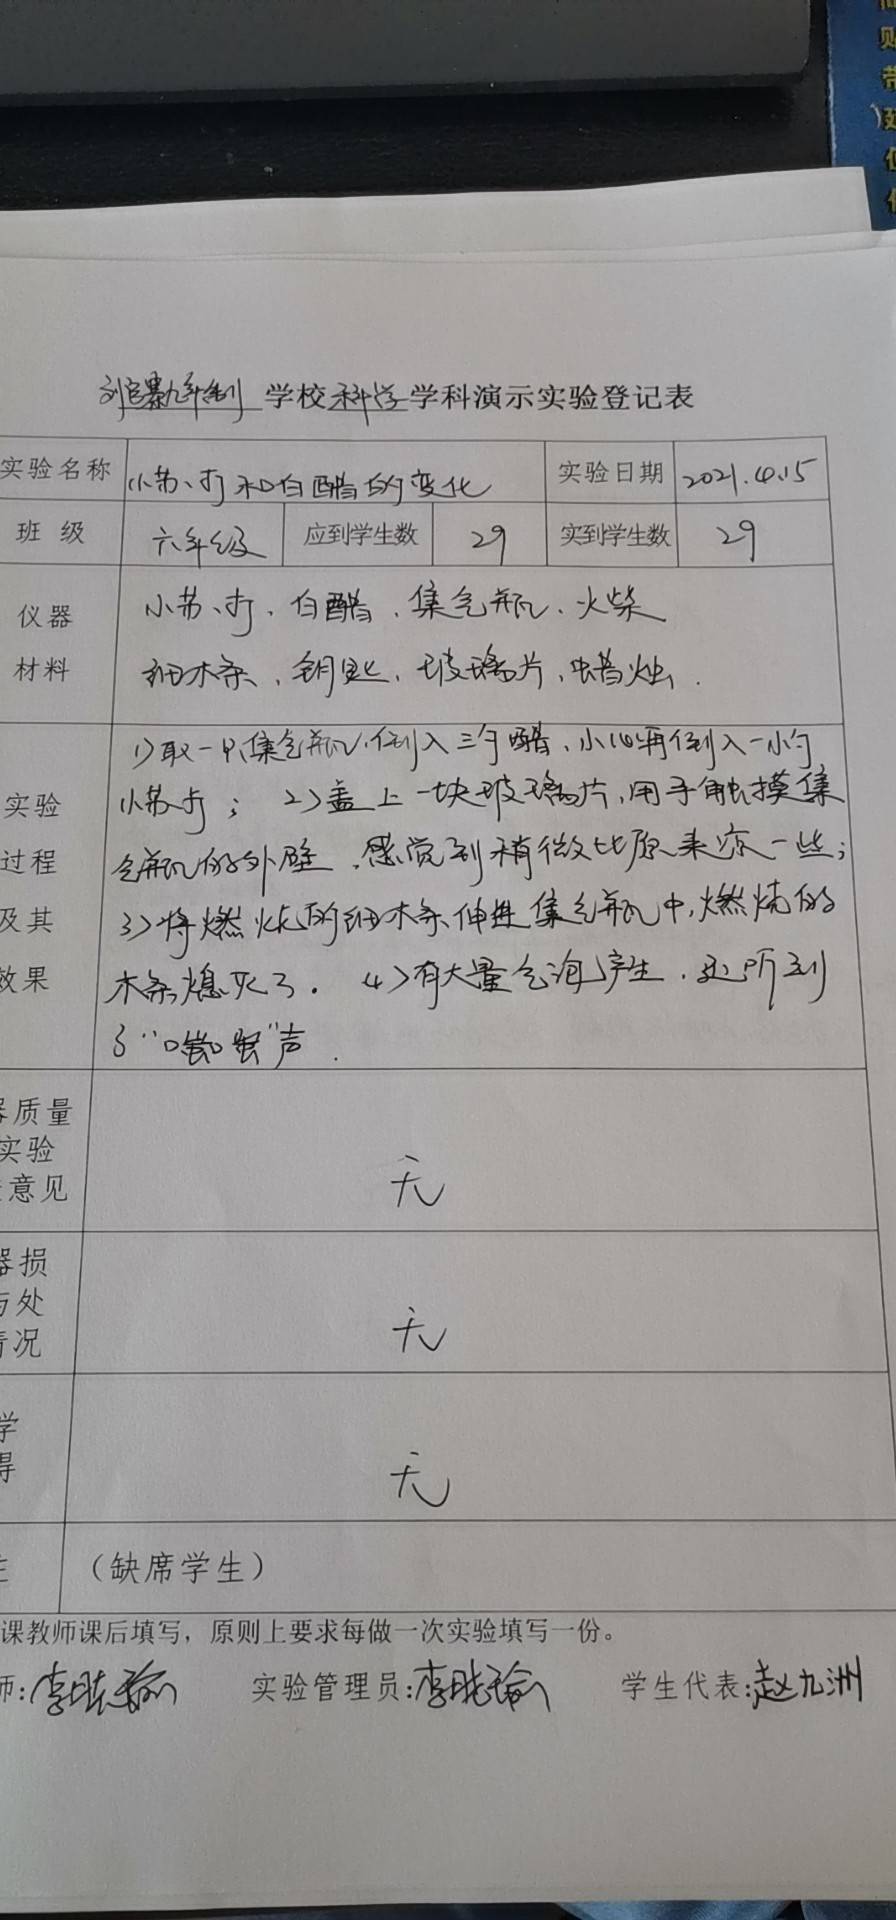 刘官寨九年制学校科学学科演示实验登记表
实验名称 小苏打和白醋的变化 实验日期 2021.4.15
班 级 六年级 应到学生数 29 实到学生数 29
仪器 小苏打、白醋、集气瓶、火柴
材料 细木条、钥匙、玻璃片、蜡烛.
1)取一只集气瓶,倒入三勺醋,小心再倒入一小勺
实验 小苏打; 2)盖上一块玻璃片,用手触摸集
过程 气瓶的外壁,感觉到稍微比原来凉一些;
及其 3)将燃烧的细木条伸进集气瓶中,燃烧的
效果 木条熄灭了. 4)有大量气泡产生,还听到
了
声.
质量
实验 无
意见
器损
与处 无
情况
学
得 无
(缺席学生)
课教师课后填写,原则上要求每做一次实验填写一份。
师: 实验管理员: 学生代表:赵九洲
贴
带